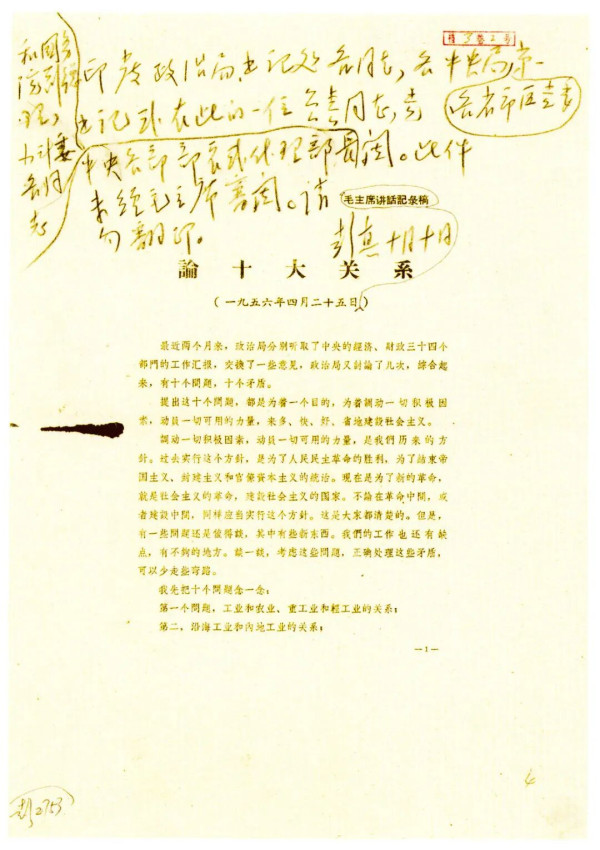 和国务
院副总
理,
办计委
各同
志
印发政治局、书记处各同志,各中央局第一
书记或在此的一位负责同志,
各省市区党委
中央各部部长或代理部长阅。此件
未经毛主席审阅。请
勿翻印。
毛主席讲話記录稿
彭真 十月十日
論十大关系
(一九五六年四月二十五日)
最近两个月来,政治局分别听取了中央的經济、財政三十四个
部門的工作汇报,交換了一些意見,政治局又討論了几次,綜合起
来,有十个問題,十个矛盾。
提出这十个問題,都是为着一个目的,为着調动一切积极因
素,动員一切可用的力量,来多、快、好、省地建設社会主义。
調动一切积极因素,动員一切可用的力量,是我們历来的方
針。过去实行这个方針,是为了人民民主革命的胜利,为了結束帝
国主义、封建主义和官僚資本主义的統治。現在是为了新的革命,
就是社会主义的革命,建設社会主义的国家。不論在革命中間,或
者建設中間,同样应当实行这个方針。这是大家都清楚的。但是,
有一些問題还是值得談,其中有些新东西。我們的工作也还有缺
点,有不夠的地方。談一談,考虑这些問題,正确处理这些矛盾,
可以少走些弯路。
我先把十个問題念一念:
第一个問題,工业和农业、重工业和輕工业的关系;
第二,沿海工业和內地工业的关系;
—1—
4
彭2753